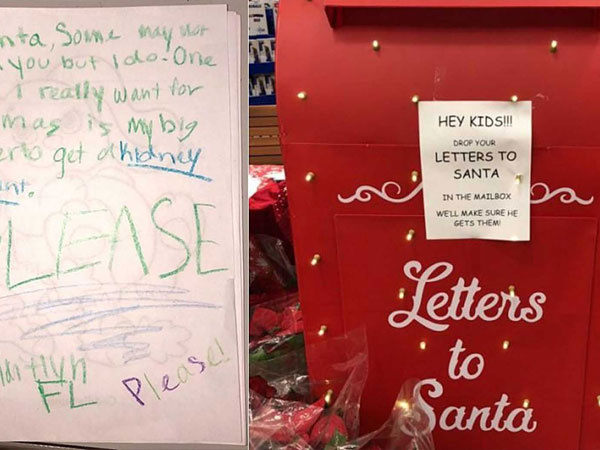 nta, Some may not
you but I do. One
I really want for
mas is my big
er to get a kidney
ant.
LEASE
aitlyn
FL
Please!
HEY KIDS!!!
DROP YOUR
LETTERS TO
SANTA
IN THE MAILBOX
WE'LL MAKE SURE HE
GETS THEM!
Letters
to
Santa